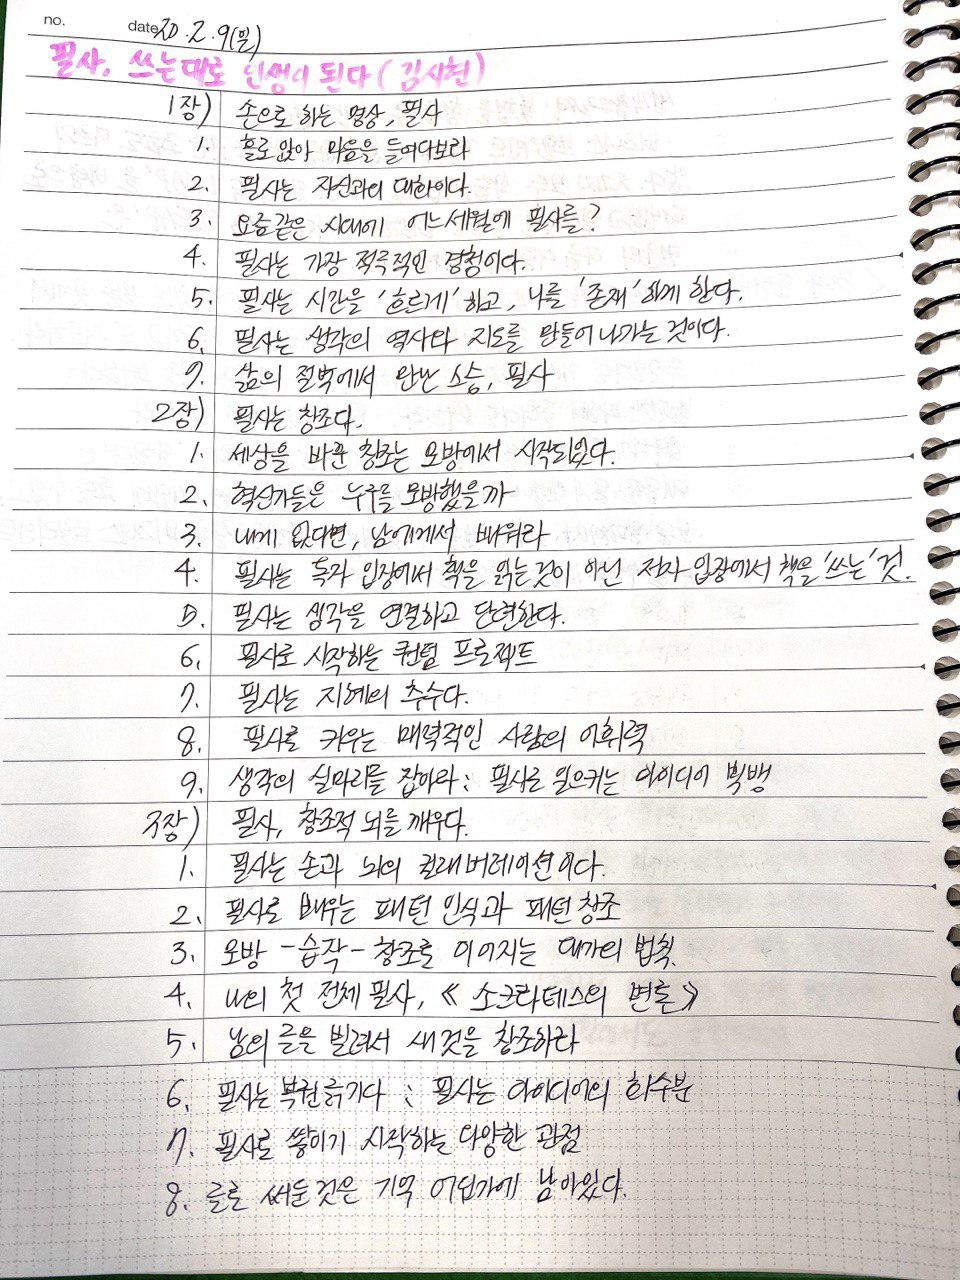 no.
date 20. 2. 9(일)
필사, 쓰는대로 인생이 된다 (김시현)
1장) 손으로 하는 명상, 필사
1. 홀로앉아 마음을 들여다보라
2. 필사는 자신과의 대화이다.
3. 요즘같은 시대에 어느세월에 필사를?
4. 필사는 가장 적극적인 경청이다.
5. 필사는 시간을 '흐르게'하고, 나를 '존재'하게 한다.
6. 필사는 생각의 역사와 지도를 만들어 나가는 것이다.
7. 삶의 절벽에서 만난 스승, 필사
2장) 필사는 창조다.
1. 세상을 바꾼 창조는 모방에서 시작되었다.
2. 혁신가들은 누구를 모방했을까
3. 내게 없다면, 남에게서 배워라
4. 필사는 독자 입장에서 책을 읽는것이 아닌 저자 입장에서 책을 '쓰는' 것.
5. 필사는 생각을 연결하고 단련한다.
6. 필사로 시작하는 퀀텀 프로젝트
7. 필사는 지혜의 추수다.
8. 필사로 키우는 매력적인 사람의 어휘력
9. 생각의 실마리를 잡아라 : 필사로 일으키는 아이디어 빅뱅
3장) 필사, 창조적 뇌를 깨우다.
1. 필사는 손과 뇌의 컬래버레이션이다.
2. 필사로 배우는 패턴 인식과 패턴 창조
3. 모방 - 습작 - 창조로 이어지는 대가의 법칙.
4. 나의 첫 전체 필사, 《 소크라테스의 변론 》
5. 남의 글을 빌려서 새것을 창조하라
6. 필사는 복권 긁기다 : 필사는 아이디어의 화수분
7. 필사로 쌓이기 시작하는 다양한 관점
8. 글로 써둔것은 기억 어딘가에 남아있다.